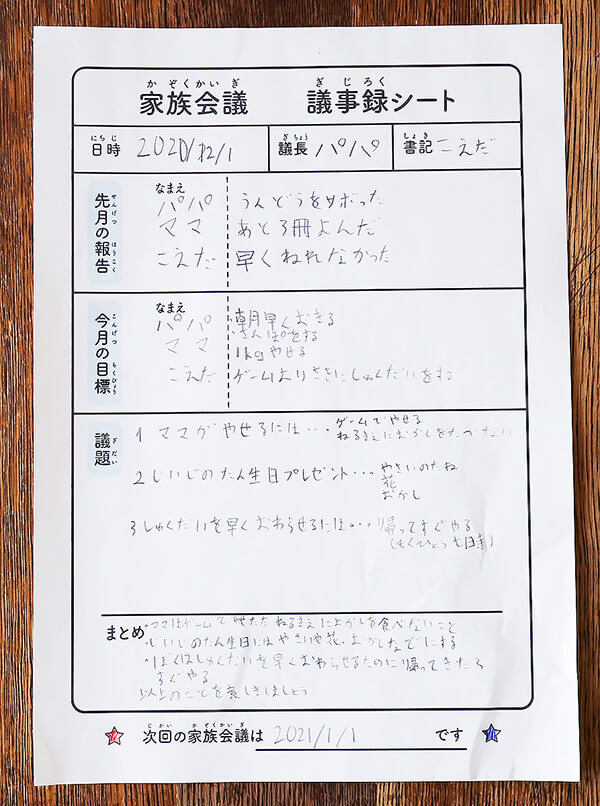 家族会議 議事録シート
かぞくかいぎ ぎじろく
日時 2020/12/1 議長 パパ 書記 こえだ
にちじ ぎちょう しょき
先月の報告
せんげつ ほうこく
なまえ
パパ うんどうをサボった
ママ あと3冊よんだ
こえだ 早くねれなかった
今月の目標
こんげつ もくひょう
なまえ
パパ 朝早くおきる
さんぽをする
ママ 1kgやせる
こえだ ゲームよりさきにしゅくだいをする
議題
ぎだい
1 ママがやせるには・・・ ゲームでやせる
ねるまえにおかしをたべない
2 じいじのたん生日プレゼント・・・ やさいのたね
花
おかし
3 しゅくだいを早くおわらせるには・・・ 帰ってすぐやる
(もくひょう 七日寺)
まとめ
・ママはゲームで ねるまえにおかしを食べないこと
・じいじのたん生日にはやさいや花、おかしなどにする
・ぼくはしゅくだいを早くおわらせるために帰ってきたら
すぐやる
以上のことを しきましょう
次回の家族会議は 2021/1/1 です
じかい かぞくかいぎ